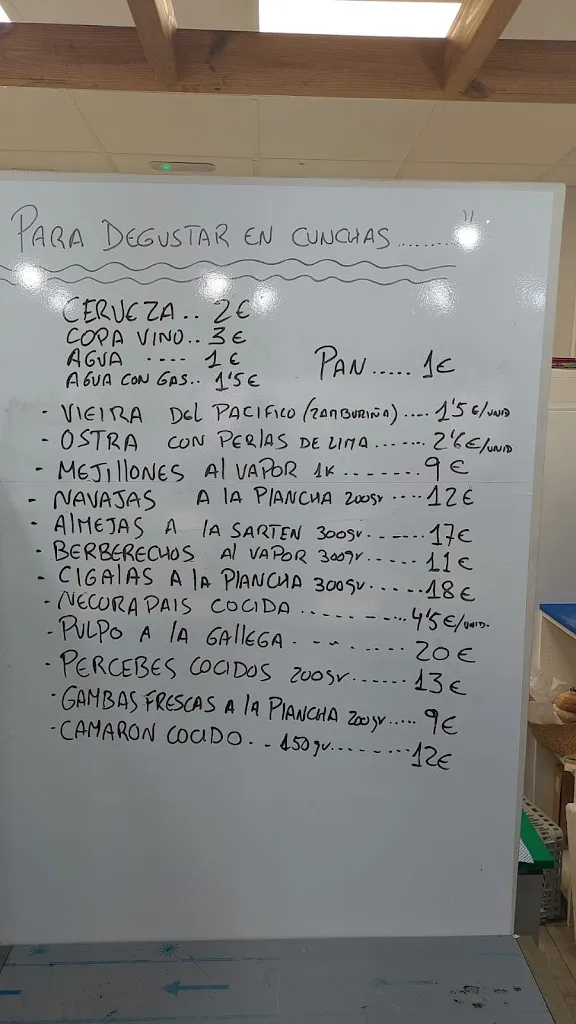 PARA DEGUSTAR EN CUNCHAS........
CERVEZA.. 2€
COPA VINO.. 3€
AGUA .... 1€
AGUA CON GAS.. 1'5€
PAN..... 1€
- VIEIRA DEL PACIFICO (ZAMBURIÑA).... 1'5€/UNID
- OSTRA CON PERLAS DE LIMA....... 2'6€/UNID
- MEJILLONES Al VAPOR 1K........ 9€
- NAVAJAS A lA PlANCHA 200gr.... 12€
- AlMEJAS A lA SARTEN 300gr....... 17€
- BERBERECHOS Al VAPOR 300gr....... 11€
- CIGAlAS A lA PlANCHA 300gr...... 18€
- NECORA PAIS COCIDA ......... 4'5€/UNID.
- PULPO A lA GAllEGA........ 20€
- PERCEBES COCIDOS 200gr...... 13€
- GAMBAS FRESCAS A lA PlANCHA 200gr..... 9€
- CAMARON COCIDO.. 150gr......... 12€